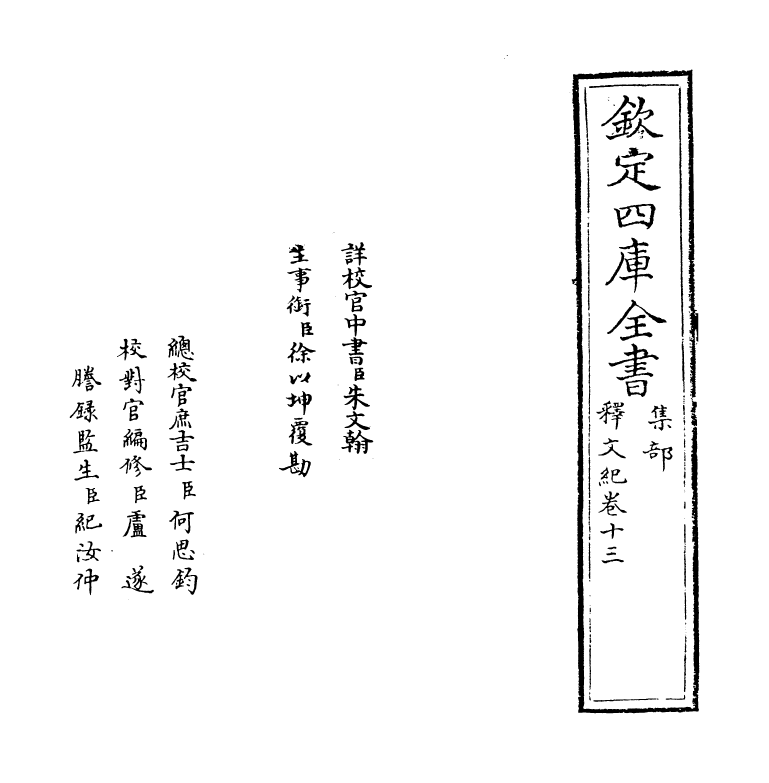 欽定四庫全書
集部
釋文紀卷十三
詳校官中書臣朱文翰
主事銜臣徐以坤覆勘
總校官庶吉士臣何思鈞
校對官編修臣盧遂
謄錄監生臣紀汝仲